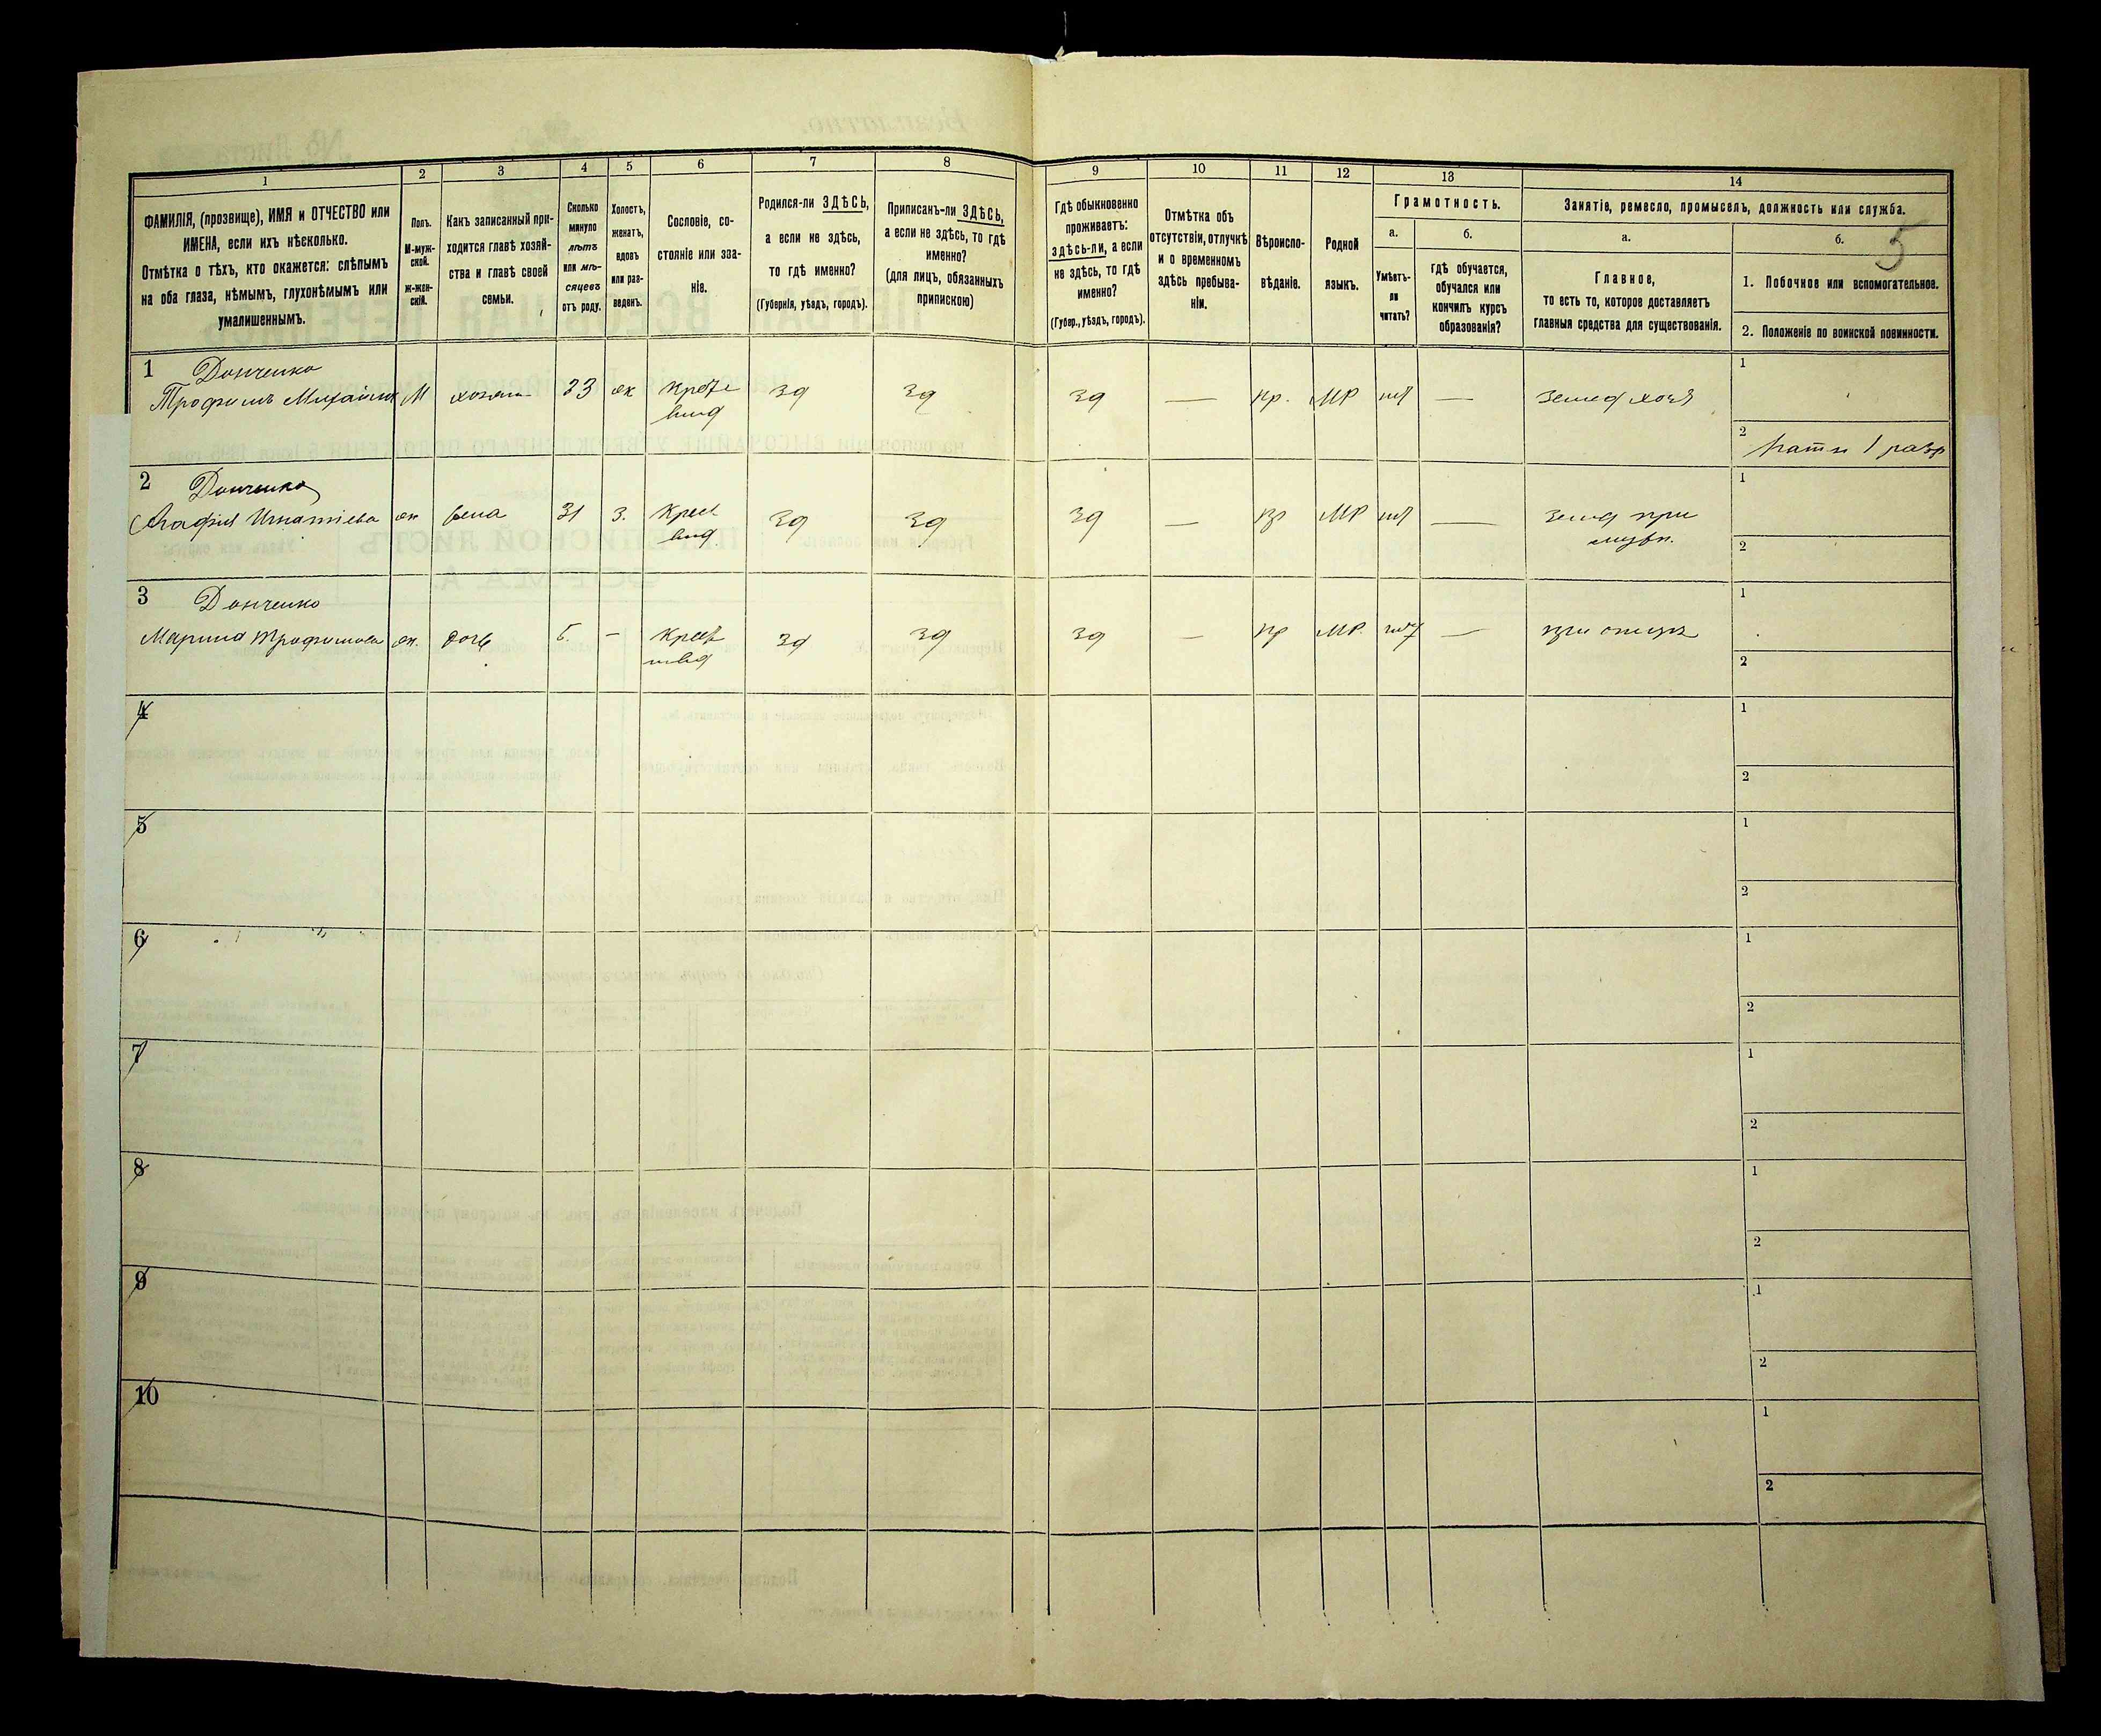 5
1 2 3 4 5 6 7 8 9 10 11 12 13 14
ФАМИЛІЯ, (прозвище), ИМЯ и ОТЧЕСТВО или
ИМЕНА, если ихъ нѣсколько.
Отмѣтка о тѣхъ, кто окажется: слѣпымъ
на оба глаза, нѣмымъ, глухонѣмымъ или
умалишеннымъ.
Полъ.
М-муж-
ской.
ж-жен-
скій.
Какъ записанный при-
ходится главѣ хозяй-
ства и главѣ своей
семьи.
Сколько
минуло
лѣтъ
или мѣ-
сяцевъ
отъ роду.
Холостъ,
женатъ,
вдовъ
или раз-
веденъ.
Сословіе, со-
стояніе или зва-
ніе.
Родился-ли ЗДѢСЬ,
а если не здѣсь,
то гдѣ именно?
(Губернія, уѣздъ, городъ).
Приписанъ-ли ЗДѢСЬ,
а если не здѣсь, то гдѣ
именно?
(для лицъ, обязанныхъ
припискою)
Гдѣ обыкновенно
проживаетъ:
здѣсь-ли, а если
не здѣсь, то гдѣ
именно?
(Губер., уѣздъ, городъ).
Отмѣтка объ
отсутствіи, отлучкѣ
и о временномъ
здѣсь пребыва-
ніи.
Вѣроиспо-
вѣданіе.
Родной
языкъ.
Грамотность.
а.
Умѣетъ-
ли
читать?
б.
гдѣ обучается,
обучался или
кончилъ курсъ
образованія?
Занятіе, ремесло, промыселъ, должность или служба.
а.
Главное,
то есть то, которое доставляетъ
главныя средства для существованія.
б.
1. Побочное или вспомогательное.
2. Положеніе по воинской повинности.
1 Донченко
Трофимъ Михайлов М хозяин 23 ж Крест
влад зд зд зд — пр. МР нѣт — землед хозя
1
2 ратн 1 разр
2 Донченко
Агафія Игнатіева ж жена 21 З. Крест
влад зд зд зд — пр МР нѣт — землд при
мужѣ.
1
2
3 Донченко
Марина Трофимова ж. дочь Крест
влад зд зд зд — пр МР. нѣт — при отцѣ
1
2
4
1
2
5
1
2
6
1
2
7
1
2
8
1
2
9
1
2
10
1
2